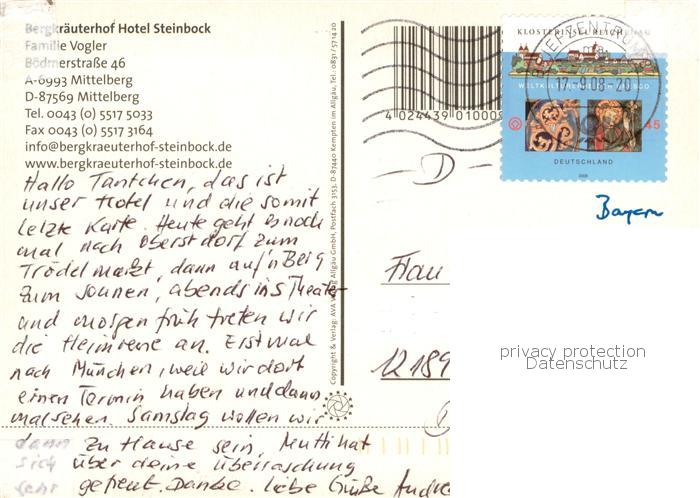 Bergkräuterhof Hotel Steinbock
Familie Vogler
Bödmerstraße 46
A-6993 Mittelberg
D-87569 Mittelberg
Tel. 0043 (0) 5517 5033
Fax 0043 (0) 5517 3164
info@bergkraeuterhof-steinbock.de
www.bergkraeuterhof-steinbock.de
Hallo Tantchen, das ist
unser Hotel und die somit
letzte Karte. Heute geht es noch
mal nach Oberstdorf zum
Trödelmarkt, dann auf'n Berg
zum sonnen, abends ins Theater
und morgen früh treten wir
die Heimreise an. Erst mal
nach München, weil wir dort
einen Termin haben und dann
mal sehen. Samstag wollen wir
dann zu Hause sein. Mutti hat
sich über deine Überraschung
sehr gefreut. Danke. Liebe Grüße Andre
Copyright & Verlag: AVA Verlag Allgäu GmbH, Postfach 3153, D-87440 Kempten im Allgäu, Tel.: 0831/571420
4 024439 01000
KLOSTERINSEL REICHENAU
BRIEFZENTRUM
17.-9.08-20
WELTKULTURERBE DER UNESCO
45
DEUTSCHLAND
2008
Bayern
- D -
Frau
12189
privacy protection
Datenschutz